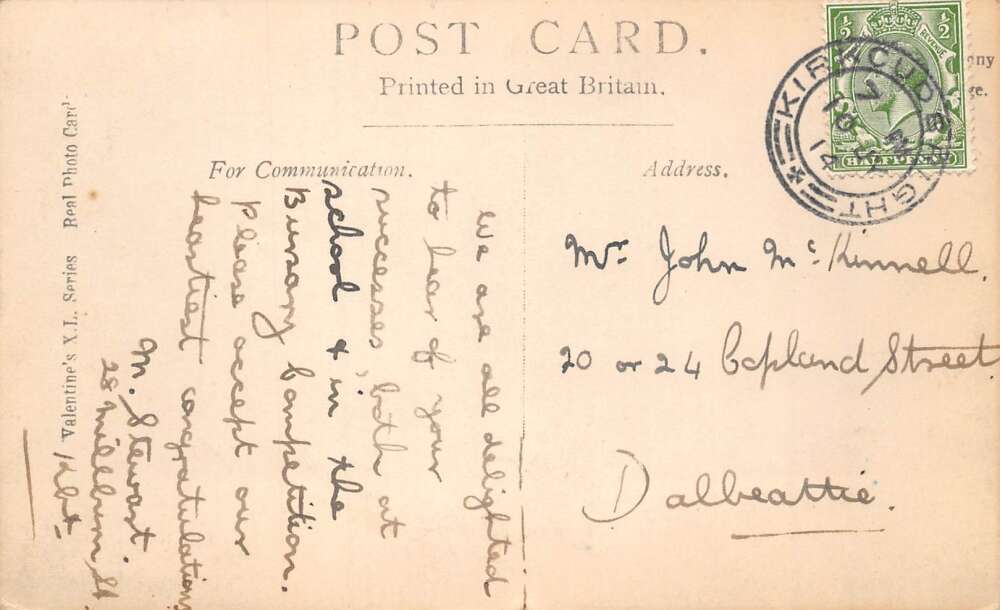 POST CARD.
Printed in Great Britain.
For Communication.
Address.
Valentine's X.L. Series Real Photo Card.
We are all delighted
to hear of your
successes, both at
school & in the
Bursary Competition.
Please accept our
heartiest congratulations
M. Stewart.
28 Millburn St
Kbt
Mr. John McKinnell.
20 or 24 Copland Street
Dalbeattie.
KIRKCUDBRIGHT
7 PM
10 JY
14
½ ½
REVENUE
HALFPENNY
nny
ge.